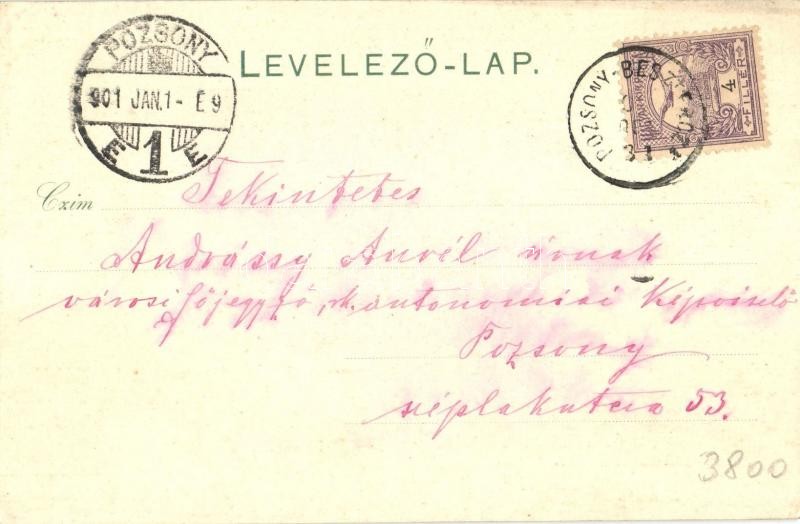 POZSONY
901 JAN.1 - E 9
E 1 E
LEVELEZŐ-LAP.
POZSONY-BESZ
31
4
FILLÉR
Czím
Tekintetes
Andrássy Aurél úrnak
városi főjegyző, autonomiai képviselő
Pozsony
széplakutcza 53.
3800